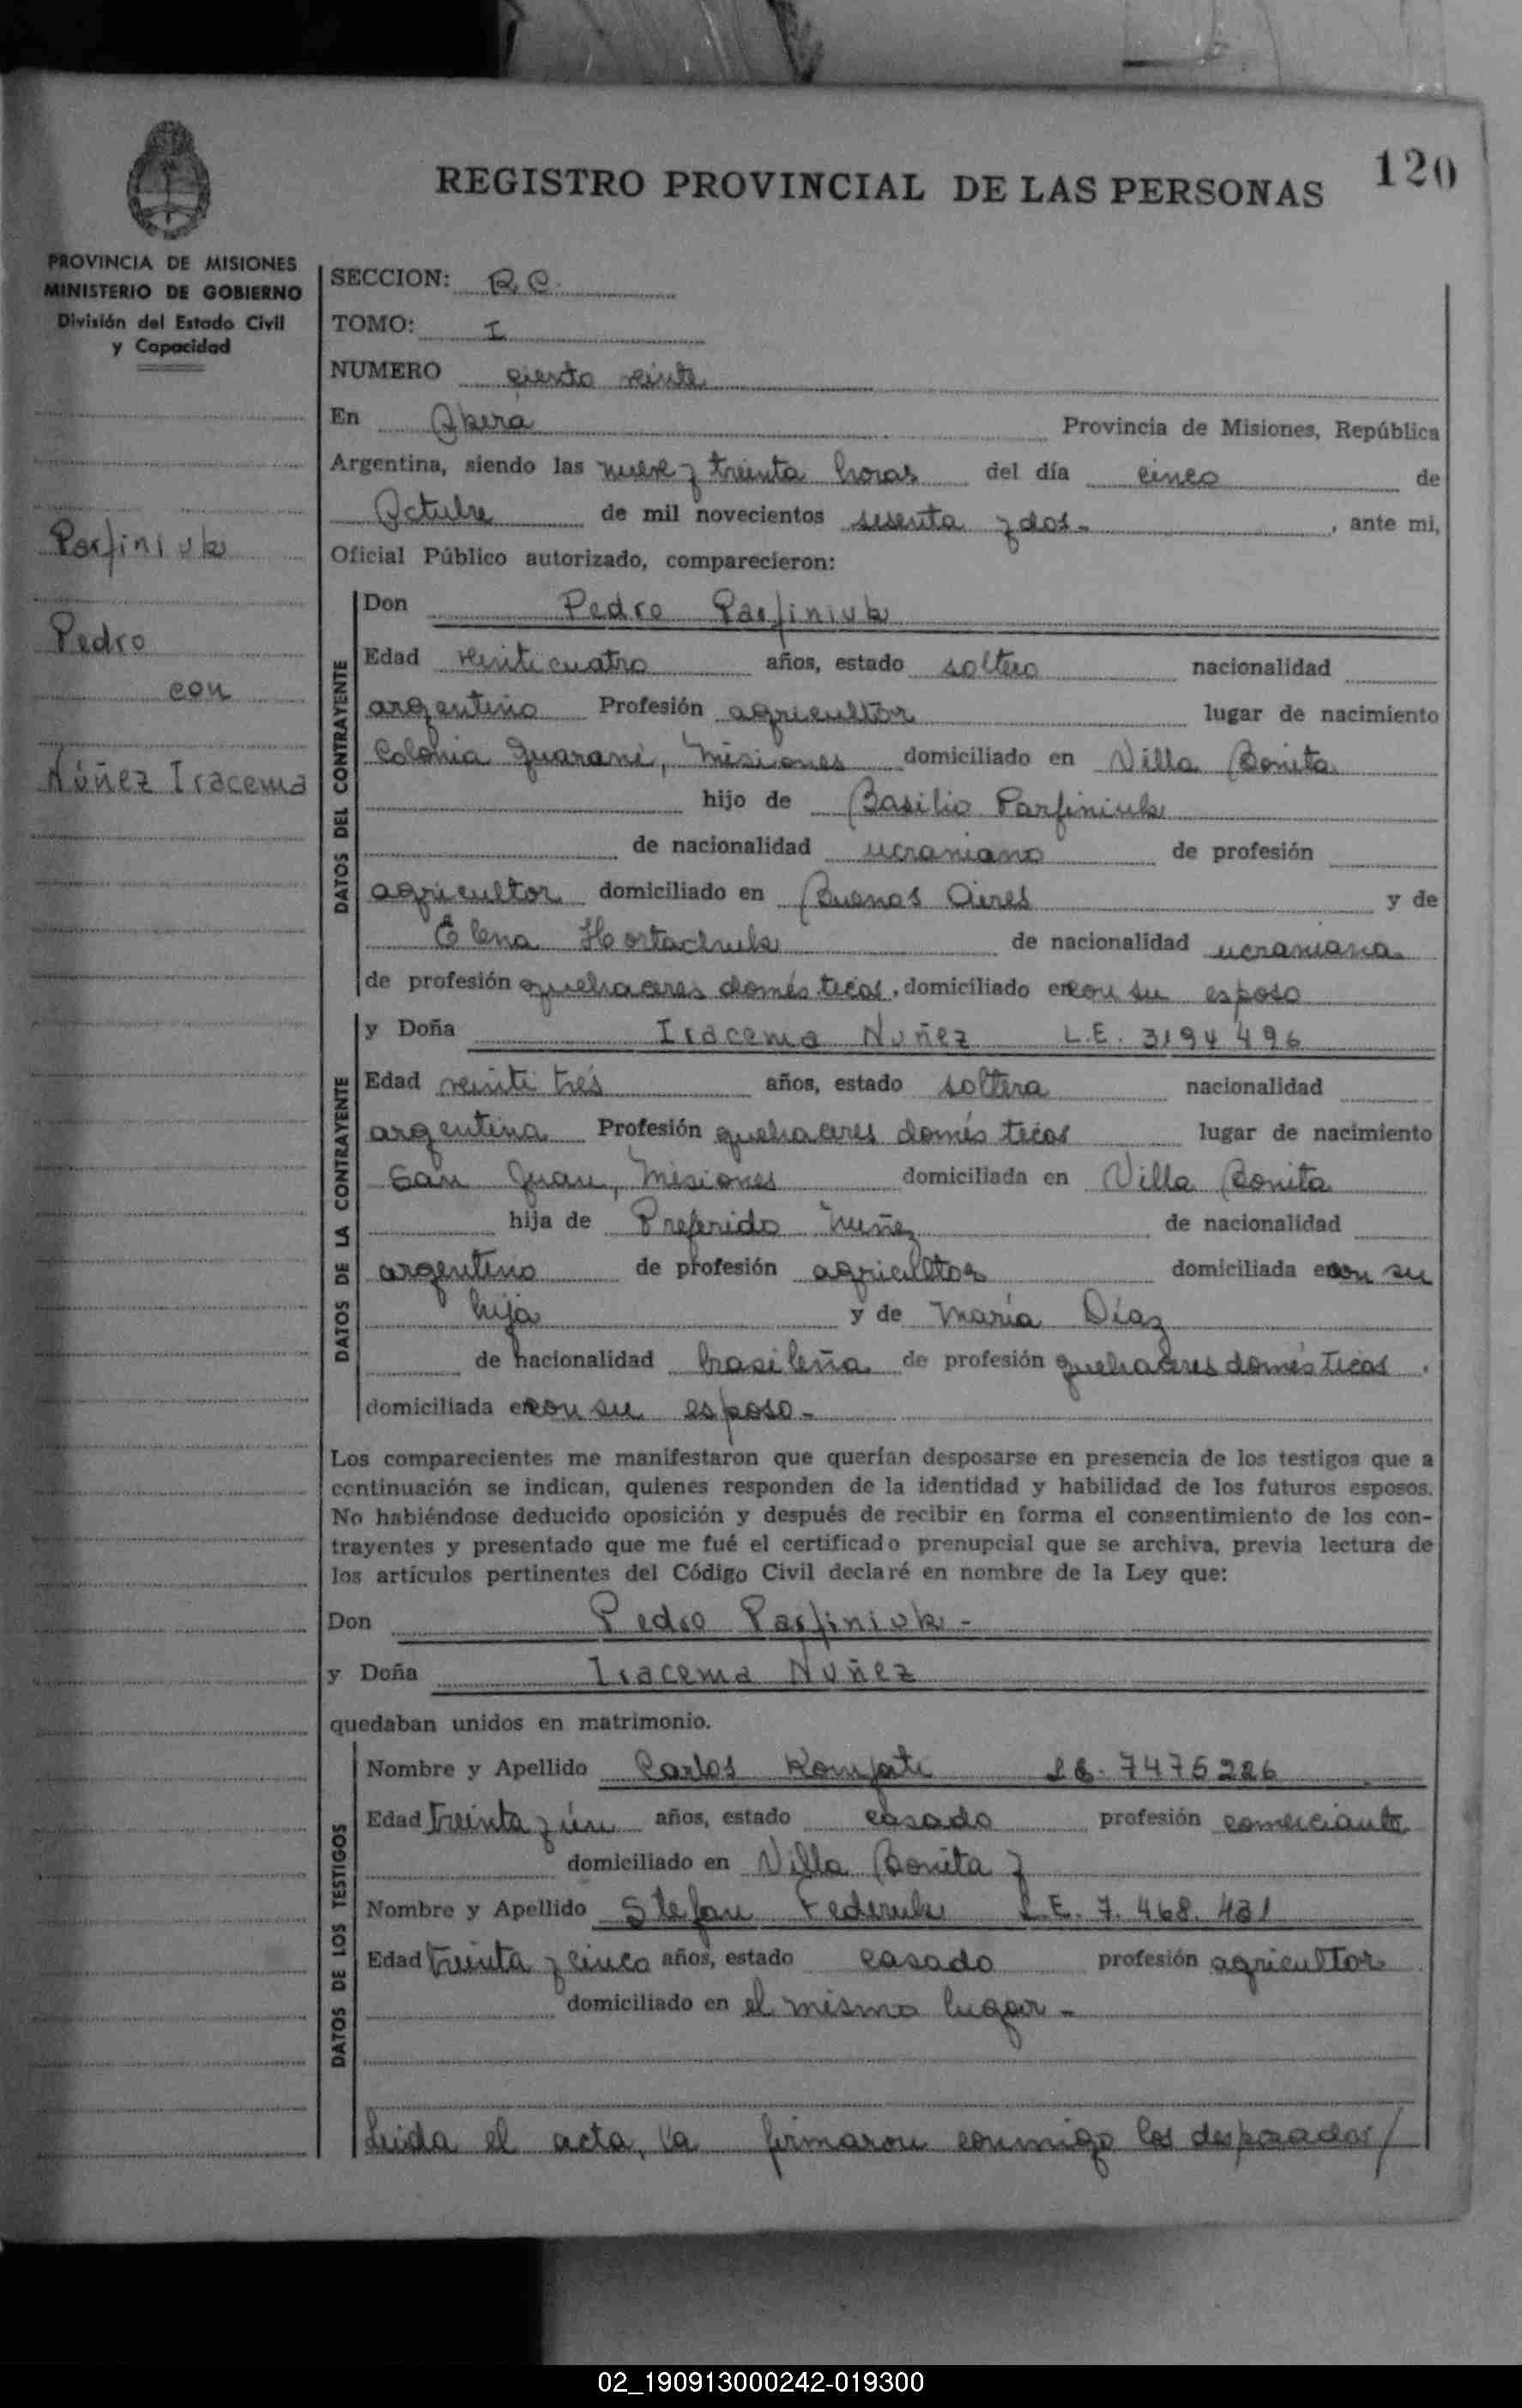 120
REGISTRO PROVINCIAL DE LAS PERSONAS
PROVINCIA DE MISIONES
MINISTERIO DE GOBIERNO
División del Estado Civil
y Capacidad
Parfiniuk
Pedro
con
Núñez Iracema
SECCION: R.C.
TOMO: I
NUMERO ciento veinte
En Obera Provincia de Misiones, República
Argentina, siendo las nueve y treinta horas del día cinco de
Octubre de mil novecientos sesenta y dos- , ante mi,
Oficial Público autorizado, comparecieron:
DATOS DEL CONTRAYENTE
Don Pedro Parfiniuk
Edad veinticuatro años, estado soltero nacionalidad
argentino Profesión agricultor lugar de nacimiento
Colonia Guaraní, Misiones domiciliado en Villa Bonita
hijo de Basilio Parfiniuk
de nacionalidad ucraniano de profesión
agricultor domiciliado en Buenos Aires y de
Elena Hortachuk de nacionalidad ucraniana
de profesión quehaceres domésticos, domiciliado en con su esposo
DATOS DE LA CONTRAYENTE
y Doña Iracema Nuñez L.E. 3194496
Edad veinti trés años, estado soltera nacionalidad
argentina Profesión quehaceres domésticos lugar de nacimiento
San Juan, Misiones domiciliada en Villa Bonita
hija de Preferido Nuñez de nacionalidad
argentino de profesión agricultor domiciliada en con su
hija y de María Díaz
de nacionalidad brasileña de profesión quehaceres domésticos .
domiciliada en con su esposo-
Los comparecientes me manifestaron que querían desposarse en presencia de los testigos que a
continuación se indican, quienes responden de la identidad y habilidad de los futuros esposos.
No habiéndose deducido oposición y después de recibir en forma el consentimiento de los con-
trayentes y presentado que me fué el certificado prenupcial que se archiva, previa lectura de
los artículos pertinentes del Código Civil declaré en nombre de la Ley que:
Don Pedro Parfiniuk-
y Doña Iracema Nuñez
quedaban unidos en matrimonio.
DATOS DE LOS TESTIGOS
Nombre y Apellido Carlos L.E. 7475226
Edad treinta y ún años, estado casado profesión comerciante
domiciliado en Villa Bonita y
Nombre y Apellido Stefan Federuk L.E. 7.468.431
Edad treinta y cinco años, estado casado profesión agricultor
domiciliado en el mismo lugar-
Leida el acta, la firmaron conmigo los desposados/
02_190913000242-019300